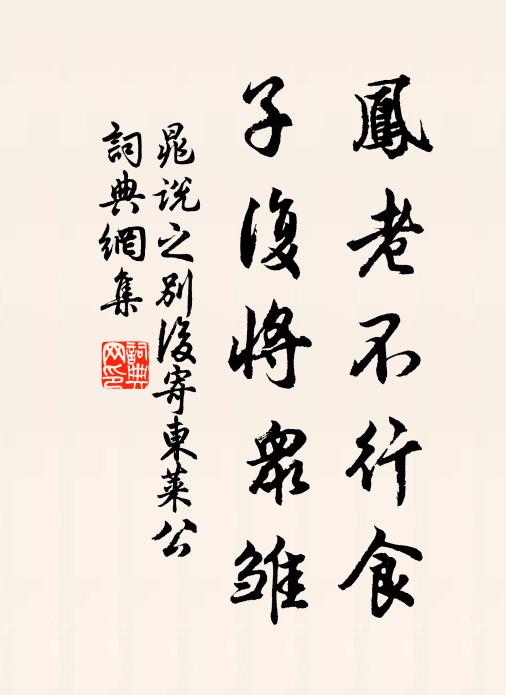 鳳老不行食
子復將眾雏
晁说之别後寄東萊公
詞典網集
詞典
网印